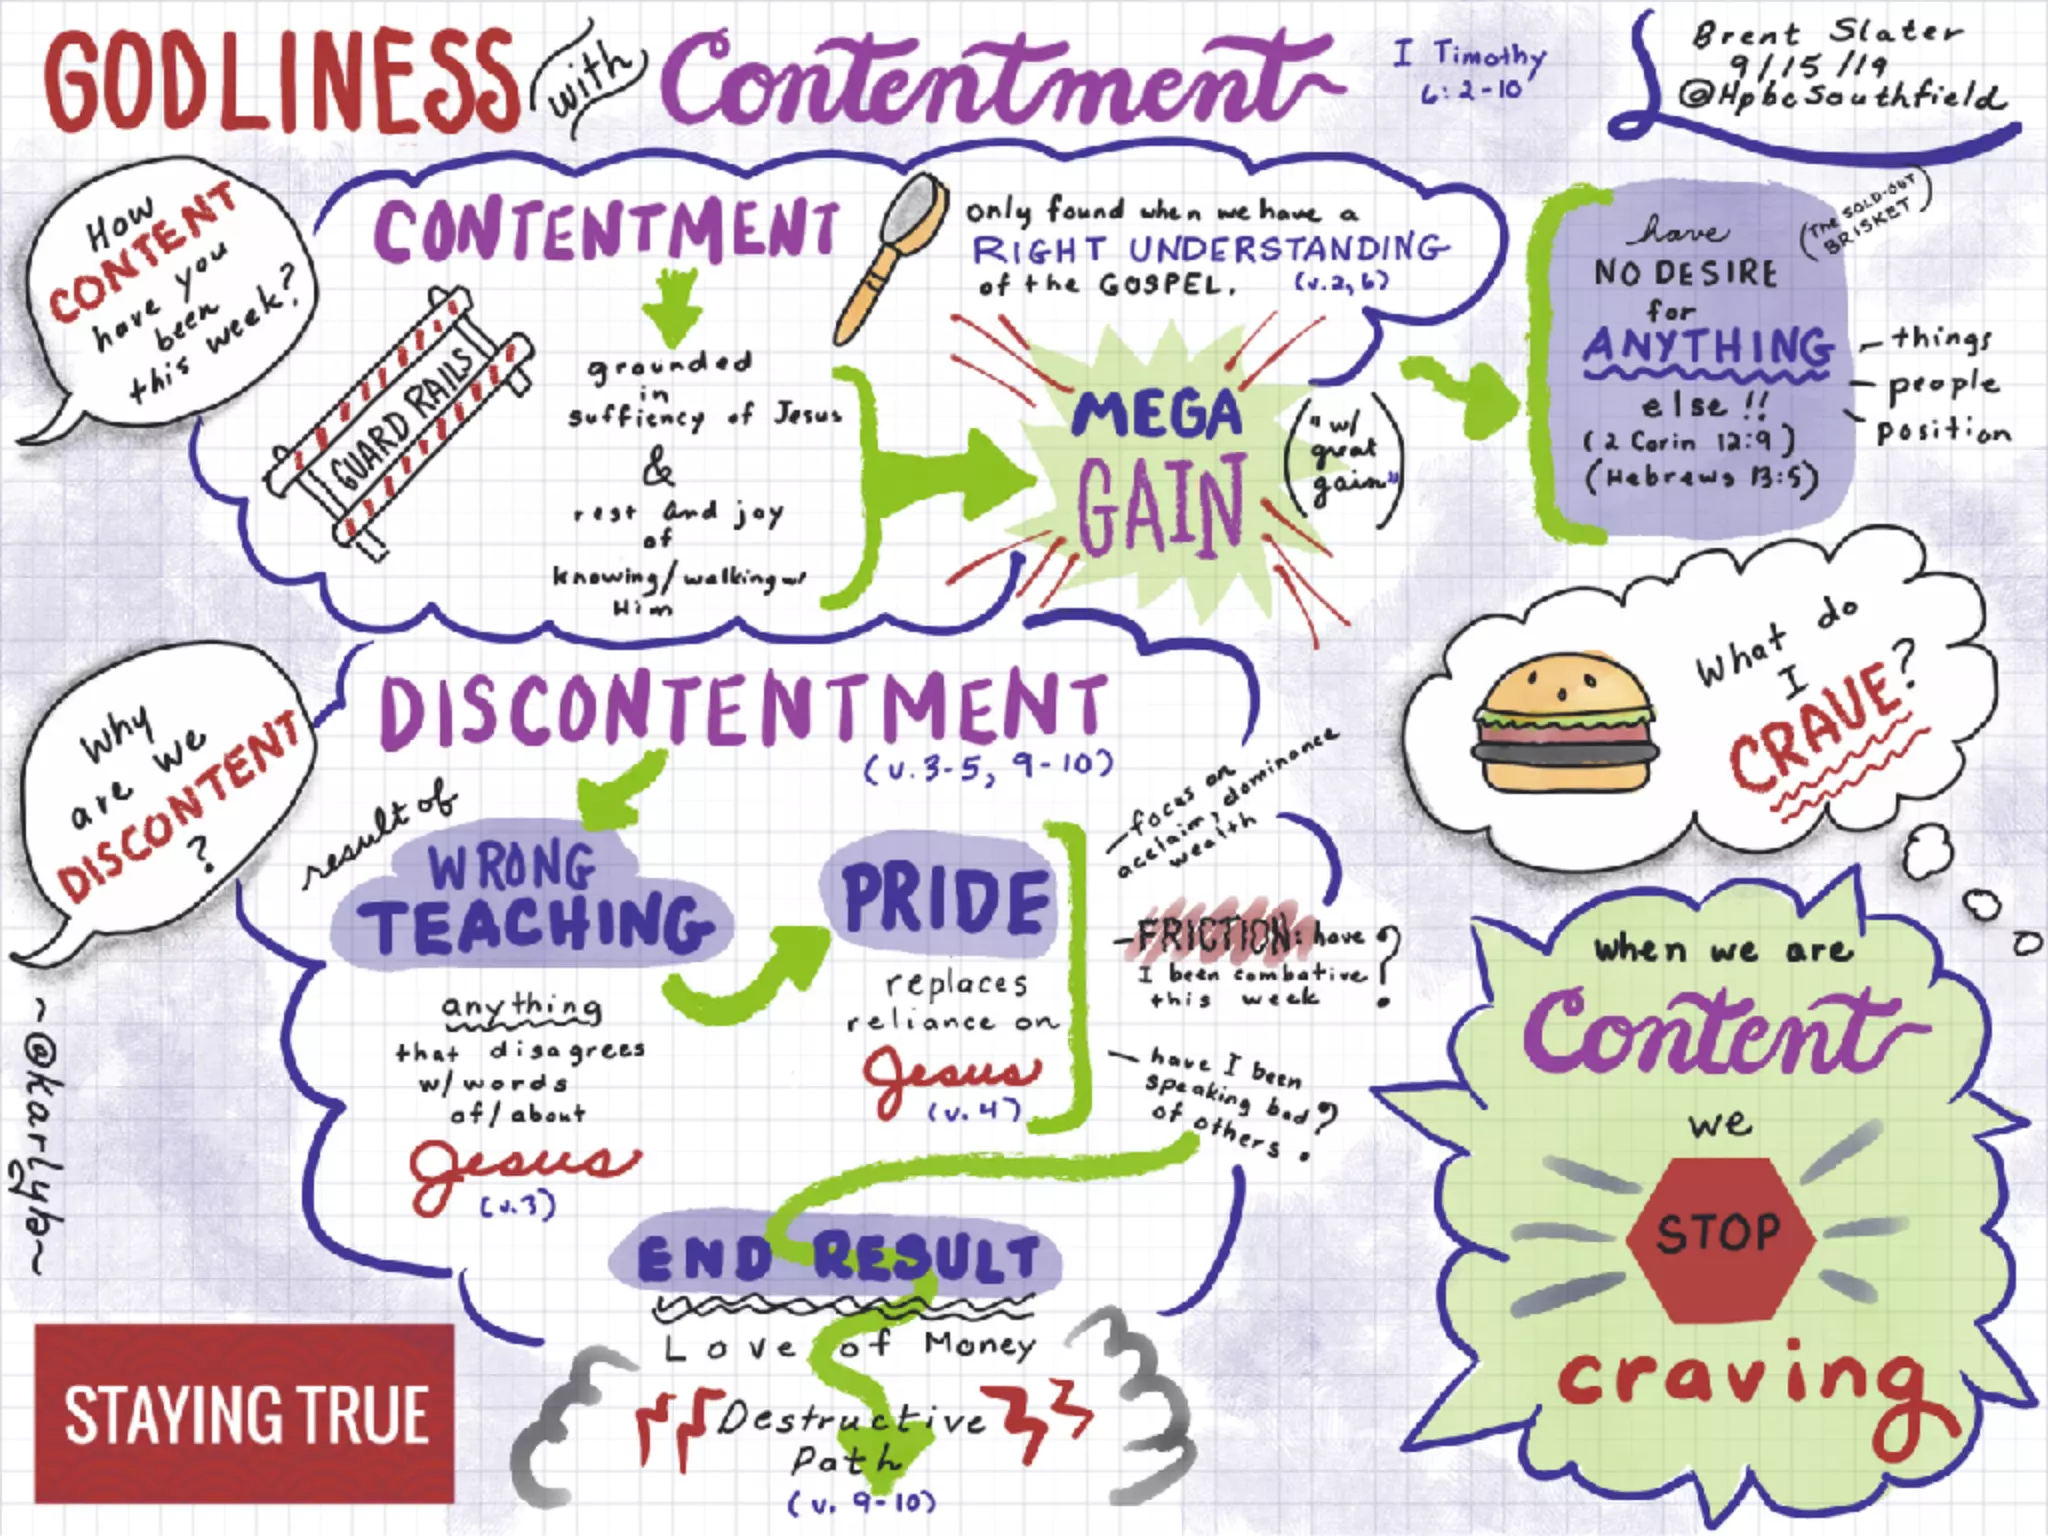 GODLINESS with Contentment
I Timothy
6:2-10
Brent Slater
9/15/19
@HpbcSouthfield
How
CONTENT
have you
been
this week?
CONTENTMENT
GUARD RAILS
grounded
in
suffiency of Jesus
&
rest and joy
of
knowing/walking w/
Him
only found when we have a
RIGHT UNDERSTANDING
of the GOSPEL. (v.2,6)
MEGA
GAIN
("w/
great
gain")
have
NO DESIRE
for
ANYTHING
else!!
(2 Corin 12:9)
(Hebrews 13:5)
(THE SOLD-OUT
BRISKET)
- things
- people
- position
What do
I
CRAVE?
Why
are we
DISCONTENT
?
DISCONTENTMENT
(v.3-5, 9-10)
result of
WRONG
TEACHING
anything
that disagrees
w/words
of/about
Jesus
(v.3)
PRIDE
replaces
reliance on
Jesus
(v.4)
- focus on
acclaim, dominance
wealth
- FRICTION: have
I been combative
this week?
- have I been
speaking bad
of others?
END RESULT
Love of Money
Destructive
Path
(v. 9-10)
when we are
Content
we
STOP
craving
~@karlyb~
STAYING TRUE